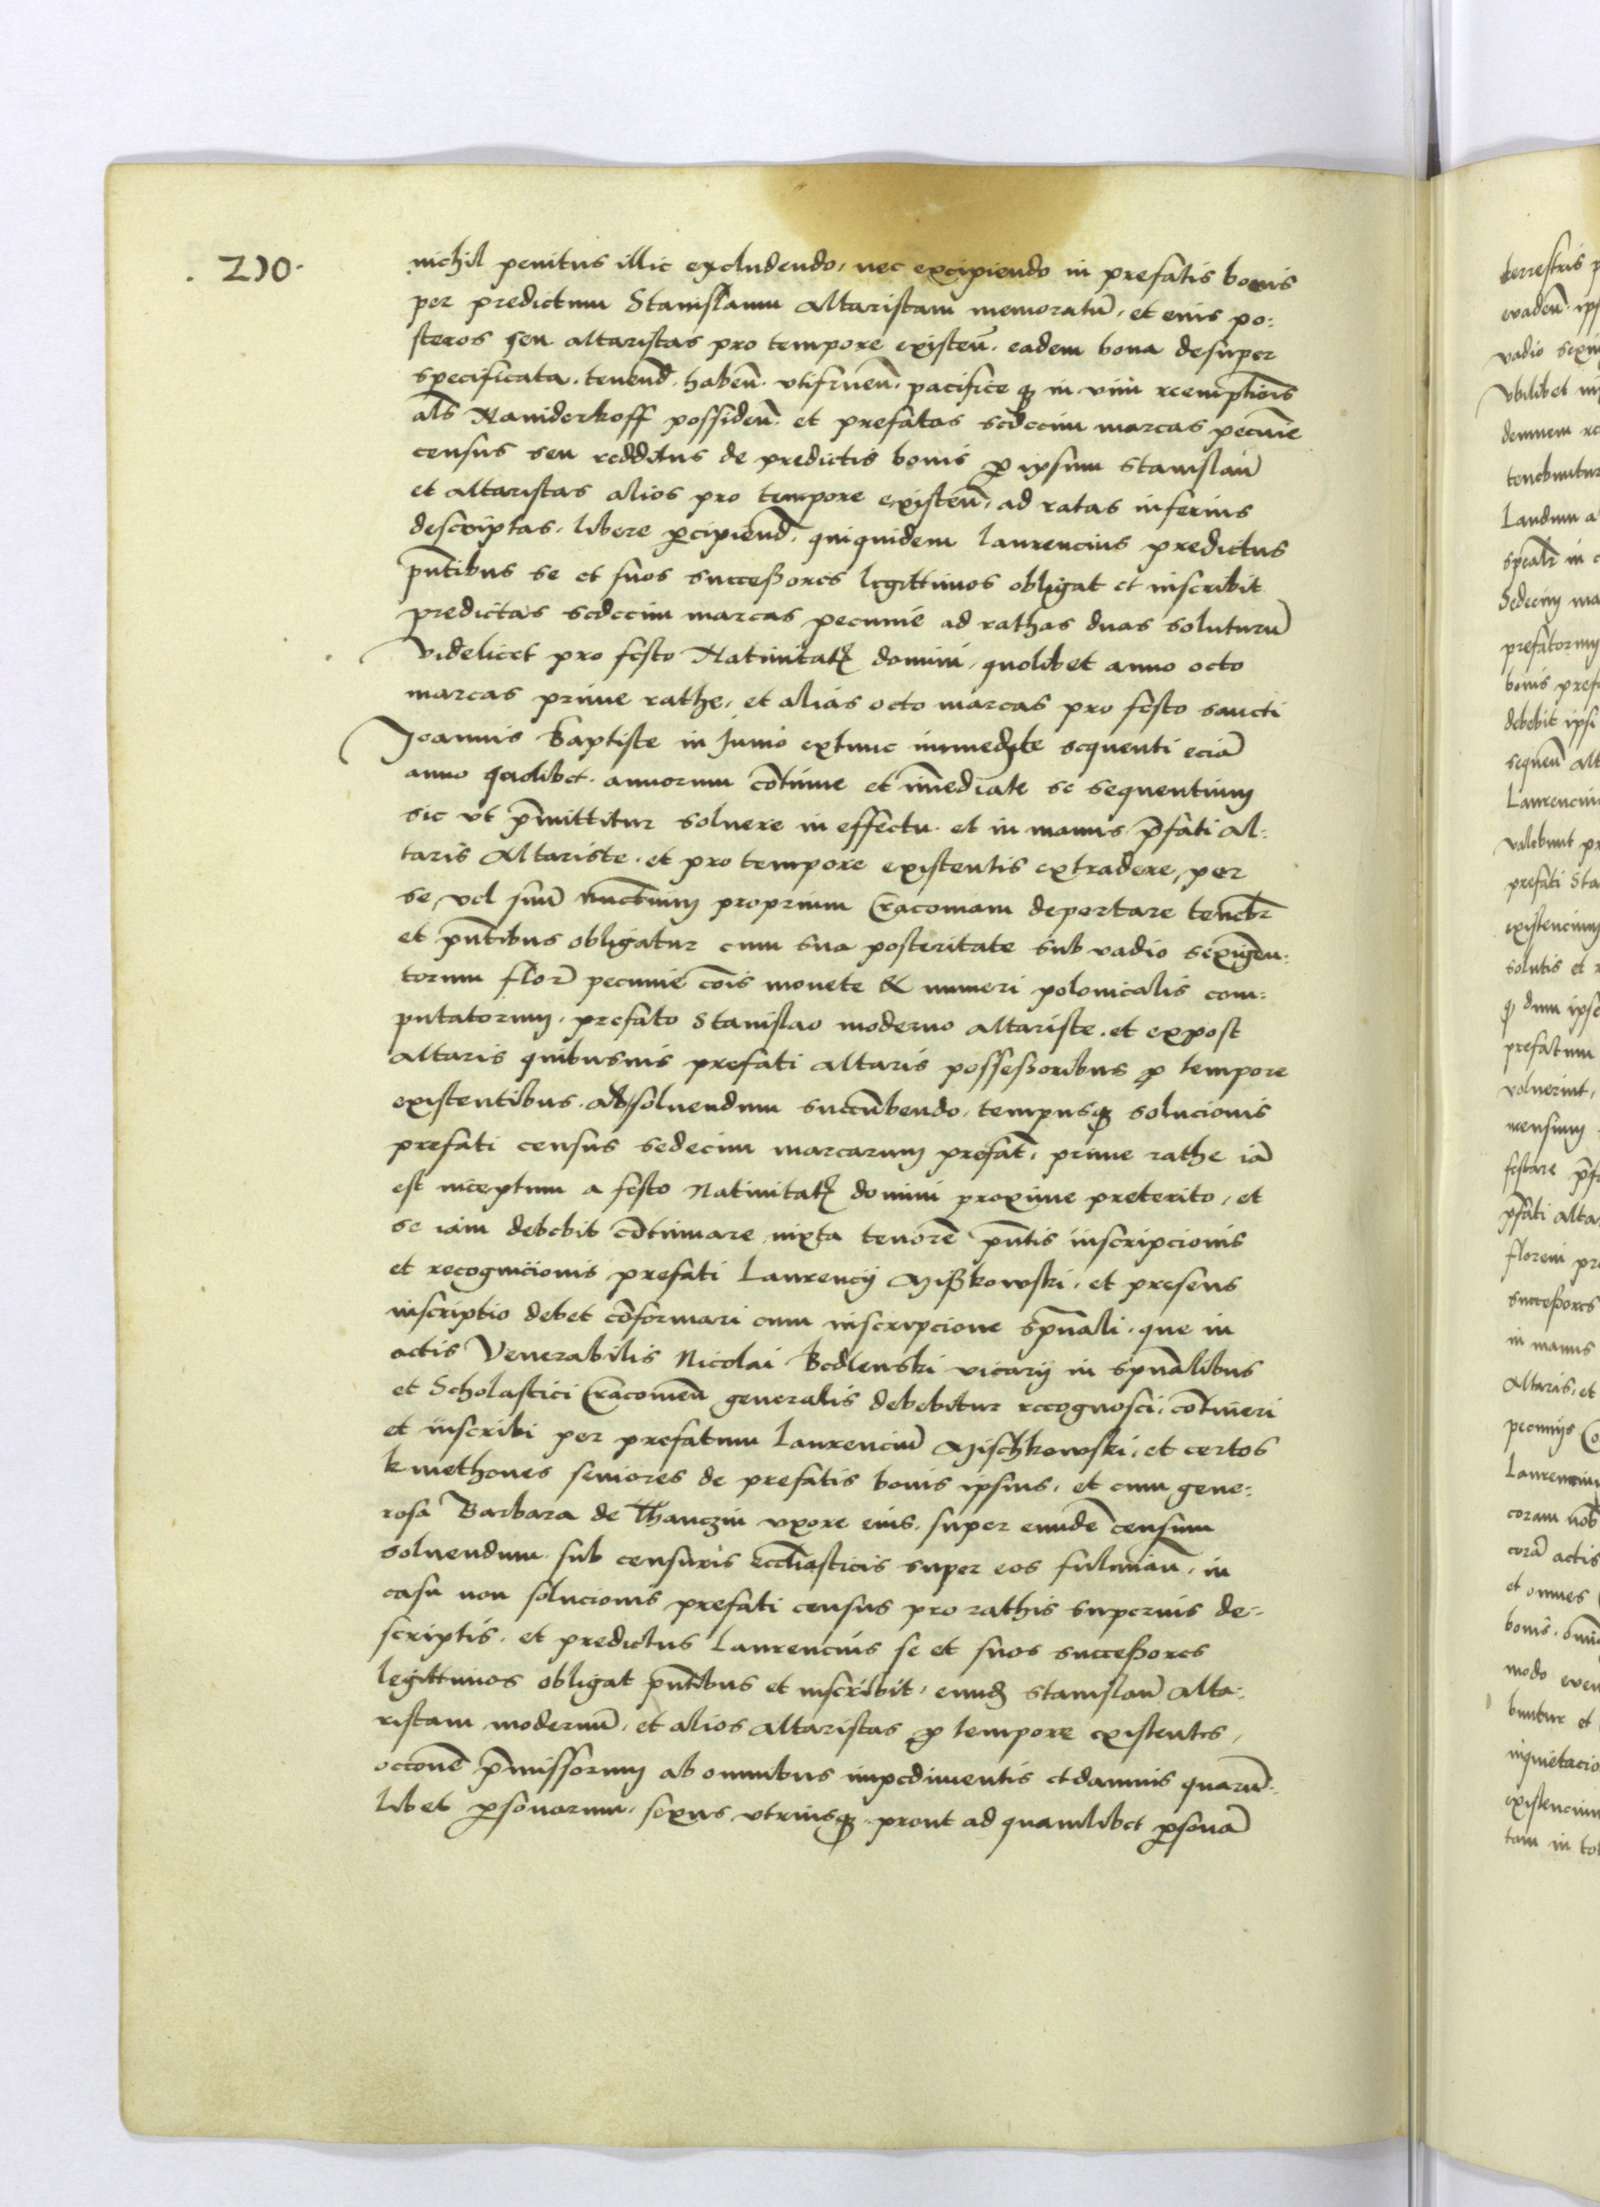 . 210.
nichil penitus illic excludendo, nec excipiendo in prefatis bonis
per predictum Stanislaum altaristam memoratū, et eius po:
steros seu altaristas pro tempore existeñ. eadem bona desuper
specificata. tenend. habeñ. vtifrueñ. pacifice q3 in vim reempcōnis
als Naniderkoff possideñ. et prefatas sedecim marcas pecunie
census seu redditus de predictis bonis ꝑ ipsum Stanislaū
et altaristas alios pro tempore existeñ, ad ratas inferius
descriptas, libere ꝑcipiend. quiquidem Laurencius predictus
pn̄tibus se et suos successores legittimos obligat et inscribit
predictas sedecim marcas pecunie ad rathas duas soluturū
videlicet pro festo Natiuitatꝭ domini, quolibet anno octo
marcas prime rathe, et alias octo marcas pro festo sancti
Joannis Baptiste in Junio extunc immediate sequenti eciā
anno quolibet. annorum cōtinue et īmediate se sequentium
sic vt p̄mittitur soluere in effectu. et in manus p̄fati al:
taris altariste. et pro tempore existentis extradere, per
se, vel suū nunctium proprium Cracouiam deportare tenebr̄
et pn̄tibus obligatur cum sua posteritate sub vadio sexingen:
torum flor̄ pecunie cōis monete & numeri polonicalis com:
putatorum. prefato Stanislao moderno altariste. et expost
altaris quibusuis prefati altaris possessoribus ꝓ tempore
existentibus. ad soluendum succūbendo. tempusq3 solucionis
prefati census sedecim marcarum prefat̄. prime rathe iā
est inceptum a festo Natiuitatꝭ domini proxime preterito, et
se iam debebit cōtinuare iuxta tenorē pn̄tis inscripcionis
et recognicionis prefati Laurencij Mißkowski, et presens
inscriptio debet cōformari cum inscripcione spūali. que in
actis Venerabilis Nicolai Bedlenski vicarij in spūalibus
et Scholastici Cracouieñ generalis debebitur recognosci, cōtineri
et inscribi per prefatum Laurenciū Mischkowski, et certos
kmethones seniores de prefatis bonis ipsius, et cum gene:
rosa Barbara de Thanczin vxore eius. super eundē censum
soluendum. sub censuris eccl̄iasticis super eos fulminañ, in
casu non solucionis prefati census pro rathis superius de:
scriptis. et predictus Laurencius se et suos successores
legittimos obligat pn̄tibus et inscribit, eundē Stanislaū alta:
ristam modernū, et alios altaristas ꝓ tempore existentes,
occōne p̄missorum ab omnibus impedimentis et damnis quarū:
libet ꝑsonarum. sexus vtriusq3. prout ad quamlibet ꝑsonā